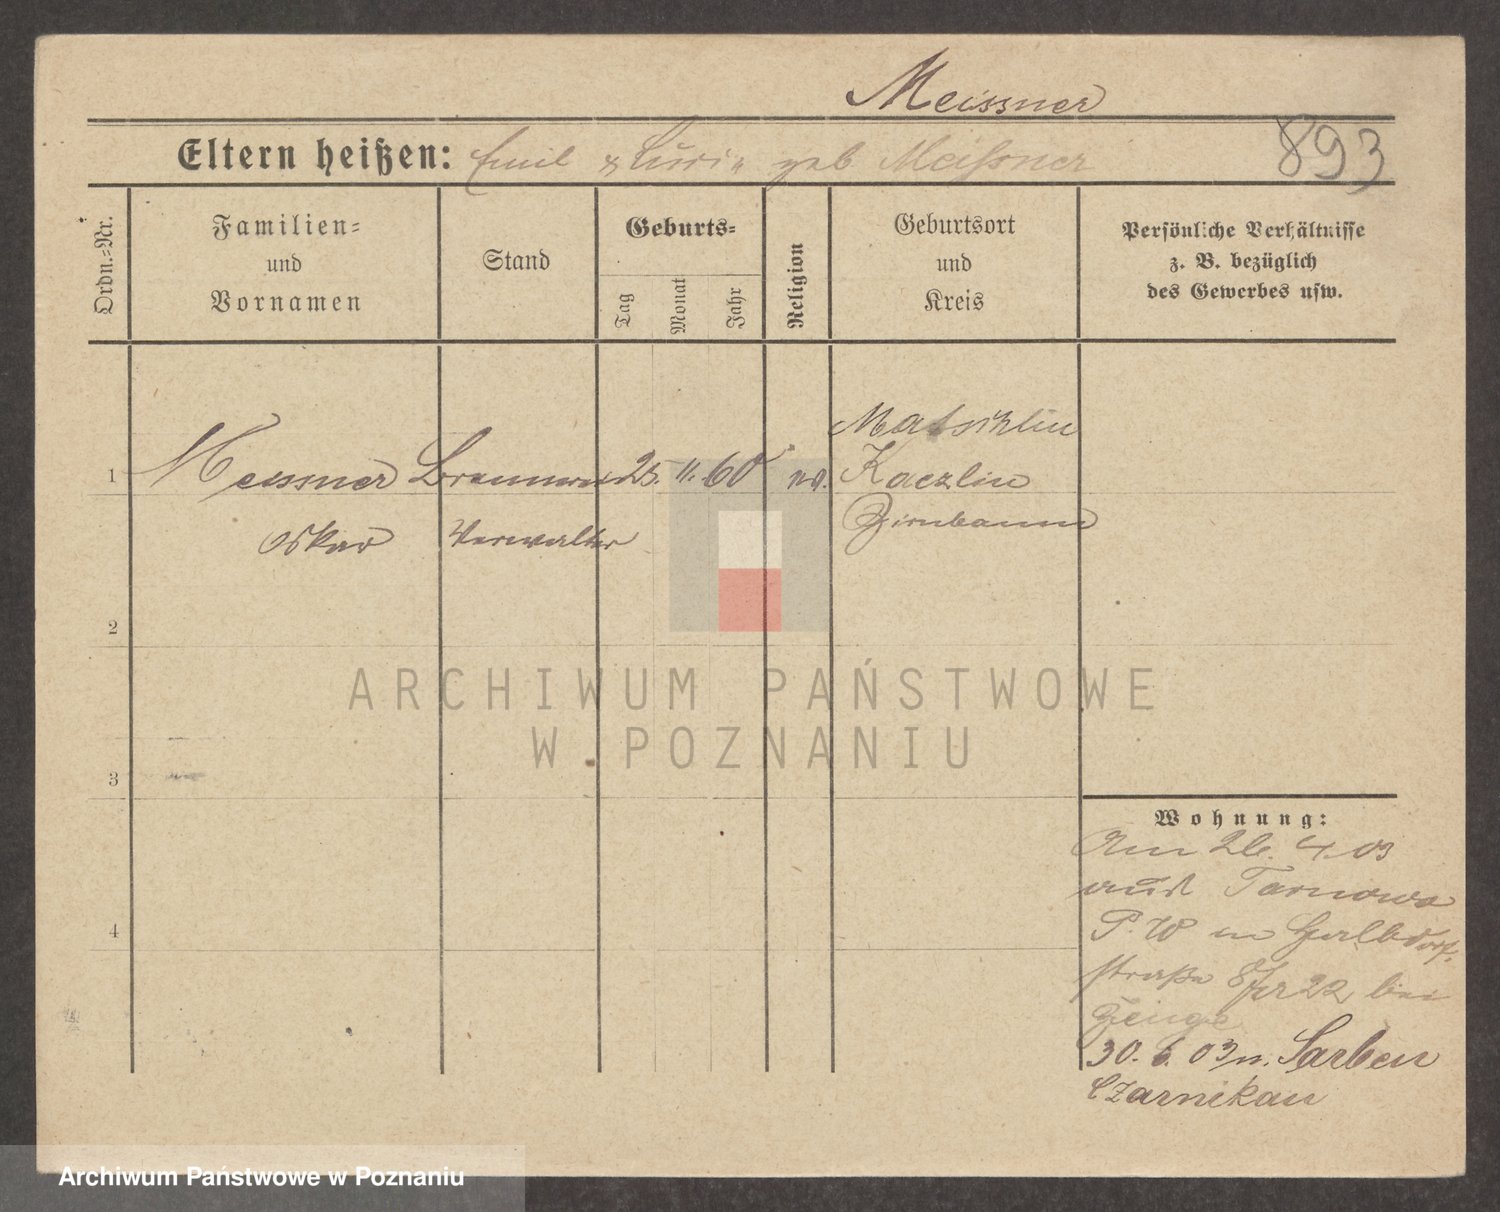 Meissner
893
Eltern heißen: Emil & geb Meißner
Ordn.-Nr.
Familien-
und
Vornamen
Stand
Geburts-
Tag
Monat
Jahr
Religion
Geburtsort
und
Kreis
Persönliche Verhältnisse
z. B. bezüglich
des Gewerbes usw.
1
Meissner
Oskar
Verwalter
25. 11. 60
ev.
Kaczlin
Birnbaum
2
3
4
Wohnung:
Am 26. 4. 03
aus Tarnowo
P. W in
straße 22 bei
30. 6. 03 n. Sarben
Czarnikau
ARCHIWUM PAŃSTWOWE
W POZNANIU
Archiwum Państwowe w Poznaniu